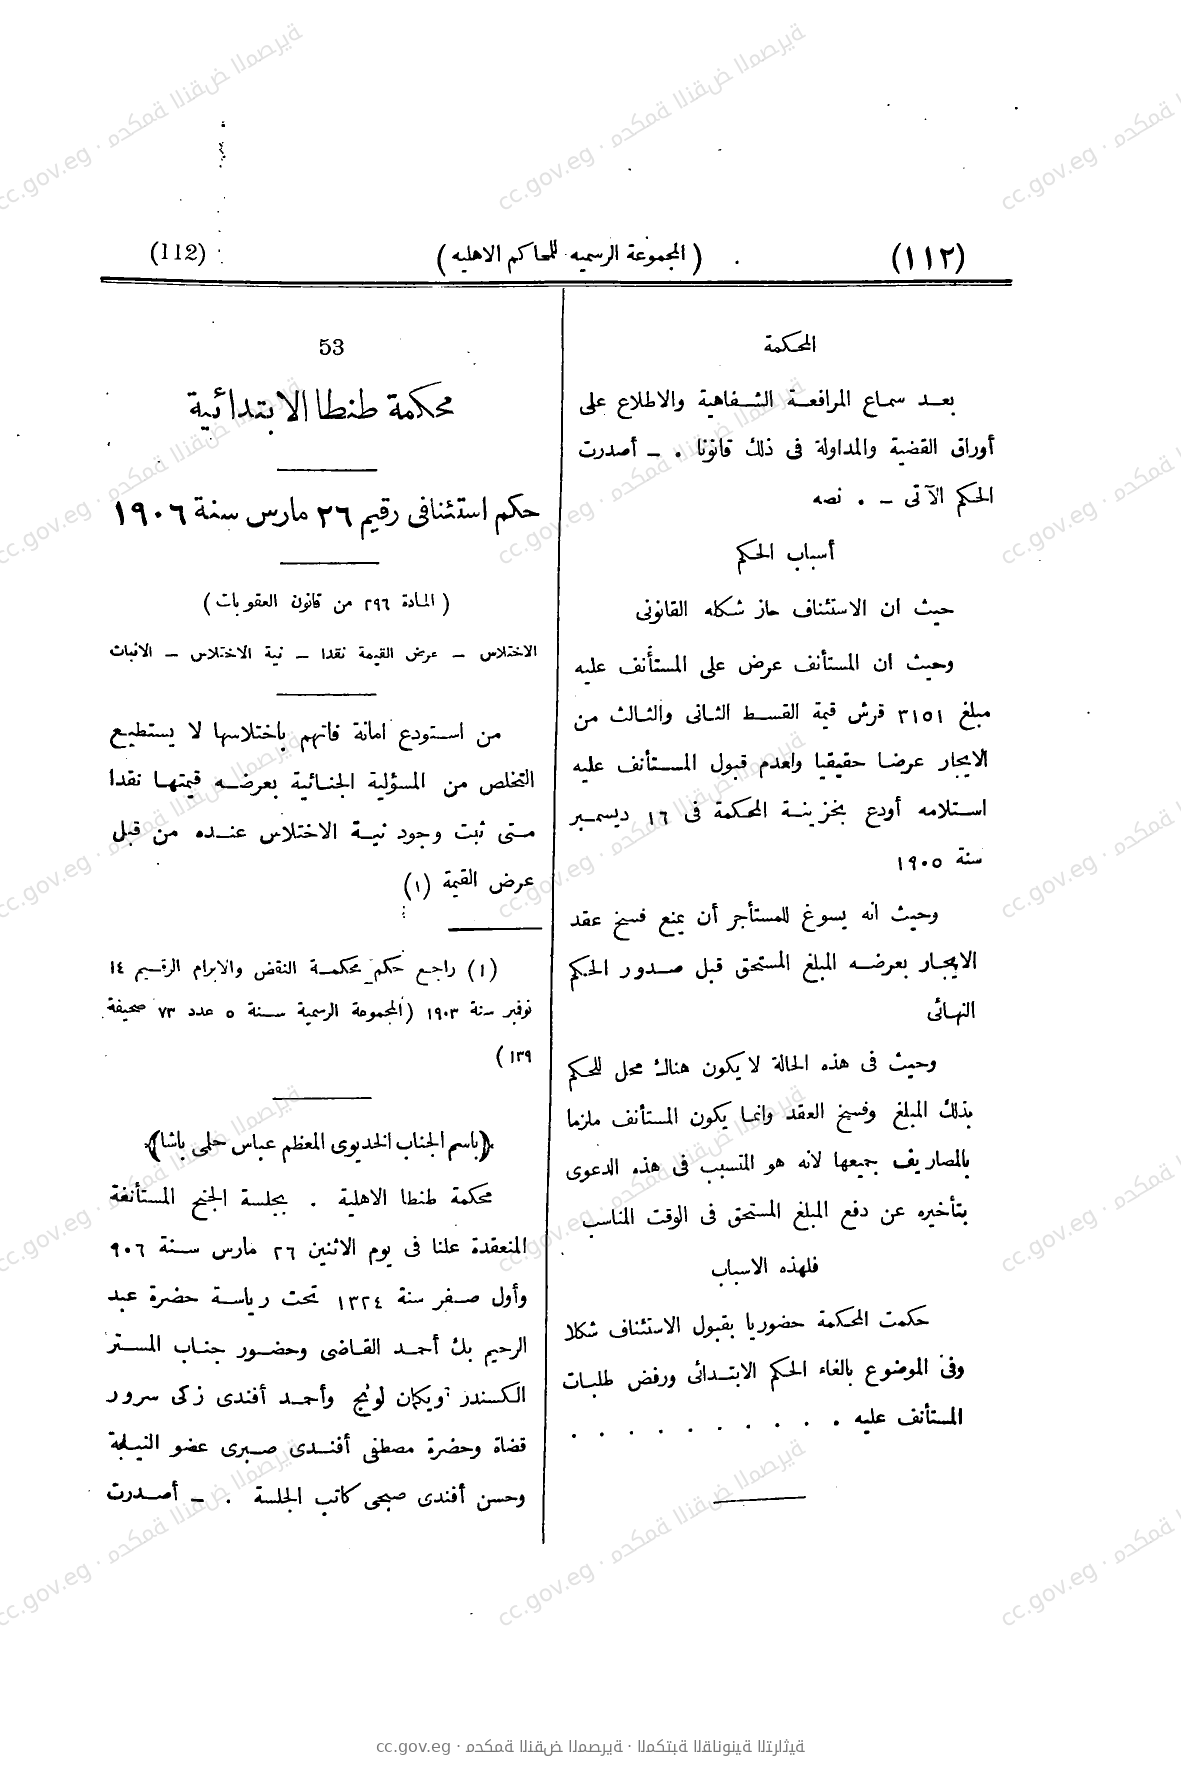 (١١٢)
( المجموعة الرسميه للمحاكم الاهليه )
(112)
المحكمة
بعد سماع المرافعة الشفاهية والاطلاع على
أوراق القضية والمداولة فى ذلك قانونا . — أصدرت
الحكم الآتى — . نصه
أسباب الحكم
حيث ان الاستئناف حاز شكله القانونى
وحيث ان المستأنف عرض على المستأنف عليه
مبلغ ٣١٥١ قرش قيمة القسط الثانى والثالث من
الايجار عرضا حقيقيا ولعدم قبول المستأنف عليه
استلامه أودع بخزينة المحكمة فى ١٦ ديسمبر
سنة ١٩٠٥
وحيث انه يسوغ للمستأجر أن يمنع فسخ عقد
الايجار بعرضه المبلغ المستحق قبل صدور الحكم
النهائى
وحيث فى هذه الحالة لا يكون هناك محل للحكم
بذلك المبلغ وفسخ العقد وانما يكون المستأنف ملزما
بالمصاريف جميعها لانه هو المتسبب فى هذه الدعوى
بتأخيره عن دفع المبلغ المستحق فى الوقت المناسب
فلهذه الاسباب
حكمت المحكمة حضوريا بقبول الاستئناف شكلا
وفى الموضوع بالغاء الحكم الابتدائى ورفض طلبات
المستأنف عليه . . . . . . . . . .
53
محكمة طنطا الابتدائية
حكم استئنافى رقيم ٢٦ مارس سنة ١٩٠٦
( المادة ٢٩٦ من قانون العقوبات )
الاختلاس — عرض القيمة نقدا — نية الاختلاس — الاثبات
من استودع امانة فاتهم باختلاسها لا يستطيع
التخلص من المسؤلية الجنائية بعرضه قيمتها نقدا
متى ثبت وجود نية الاختلاس عنده من قبل
عرض القيمة (١)
(١) راجع حكم محكمة النقض والابرام الرقيم ١٤
نوفمبر سنة ١٩٠٣ (المجموعة الرسمية سنة ٥ عدد ٧٣ صحيفة
١٣٩ )
﴿باسم الجناب الخديوى المعظم عباس حلمى باشا﴾
محكمة طنطا الاهلية . بجلسة الجنح المستأنفة
المنعقدة علنا فى يوم الاثنين ٢٦ مارس سنة ٩٠٦
وأول صفر سنة ١٣٢٤ تحت رياسة حضرة عبد
الرحيم بك أحمد القاضى وحضور جناب المستر
الكسندر ويكمان لونج وأحمد أفندى زكى سرور
قضاة وحضرة مصطفى أفندى صبرى عضو النيابة
وحسن أفندى صبحى كاتب الجلسة . — أصدرت
cc.gov.eg · محكمة النقض المصرية · المكتبة القانونية التراثية